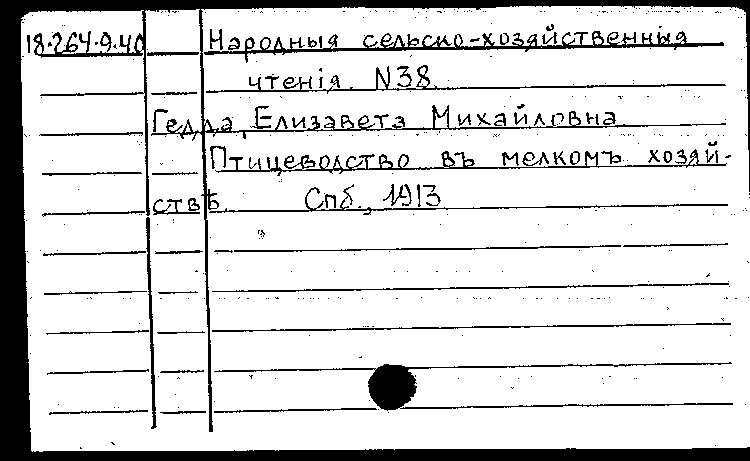 18.264.9.40 Народныя сельско-хозяйственныя
чтенія. N38.
Гедда, Елизавета Михайловна
Птицеводство въ мелкомъ хозяй-
ствѣ. Спб., 1913